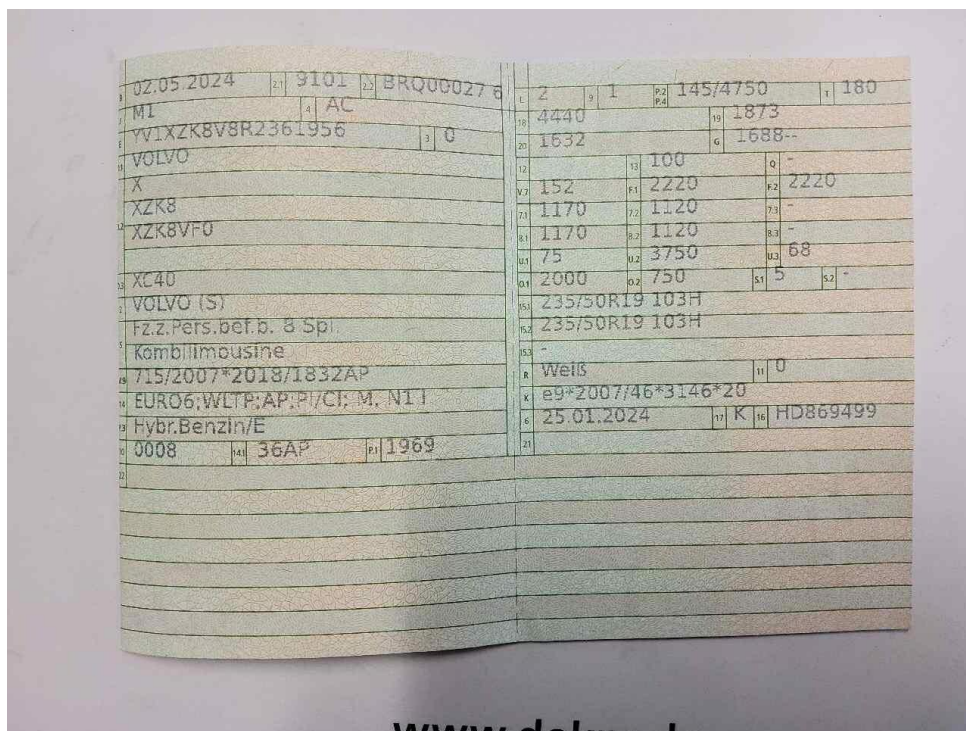 B 02.05.2024 2.1 9101 2.2 BRQ00027 6
J M1 4 AC
E YV1XZK8V8R2361956 3 0
D.1 VOLVO
X
XZK8
D.2 XZK8VF0
D.3 XC40
2 VOLVO (S)
Fz.z.Pers.bef.b. 8 Spl.
5 Kombilimousine
V.9 715/2007*2018/1832AP
14 EURO6;WLTP;AP;PI/CI; M, N1 I
P.3 Hybr.Benzin/E
10 0008 14.1 36AP P.1 1969
22
L 2 9 1 P.2 P.4 145/4750 T 180
18 4440 19 1873
20 1632 G 1688--
12 13 100 Q -
V.7 152 F.1 2220 F.2 2220
7.1 1170 7.2 1120 7.3 -
8.1 1170 8.2 1120 8.3 -
U.1 75 U.2 3750 U.3 68
O.1 2000 O.2 750 S.1 5 S.2 -
15.1 235/50R19 103H
15.2 235/50R19 103H
15.3 -
R Weiß 11 0
K e9*2007/46*3146*20
6 25.01.2024 17 K 16 HD869499
21